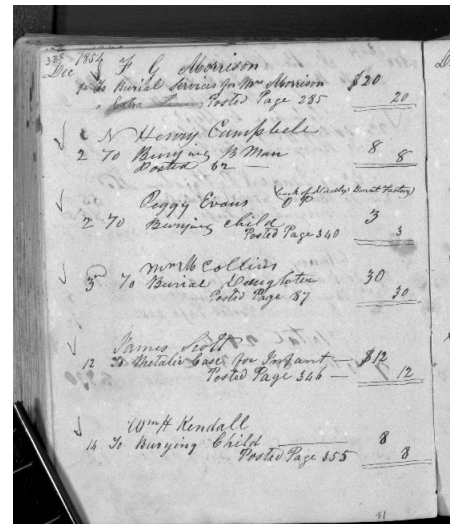 Dec 1854 F G Morrison
To Burial Services for Mrs Morrison $20
" Posted Page 285 20
N Henry Campbell
2 To Burying B Man 8
Posted 62 — 8
Peggy Evans O P
2 To Burying child 3
Posted Page 340 3
Wm M Collins
3 To Burial Daughter 30
Posted Page 87 30
James Scott
12 To Metalic Case for Infant — $12
Posted Page 346 — 12
Wm H Kendall
14 To Burying Child 8
Posted Page 355 8